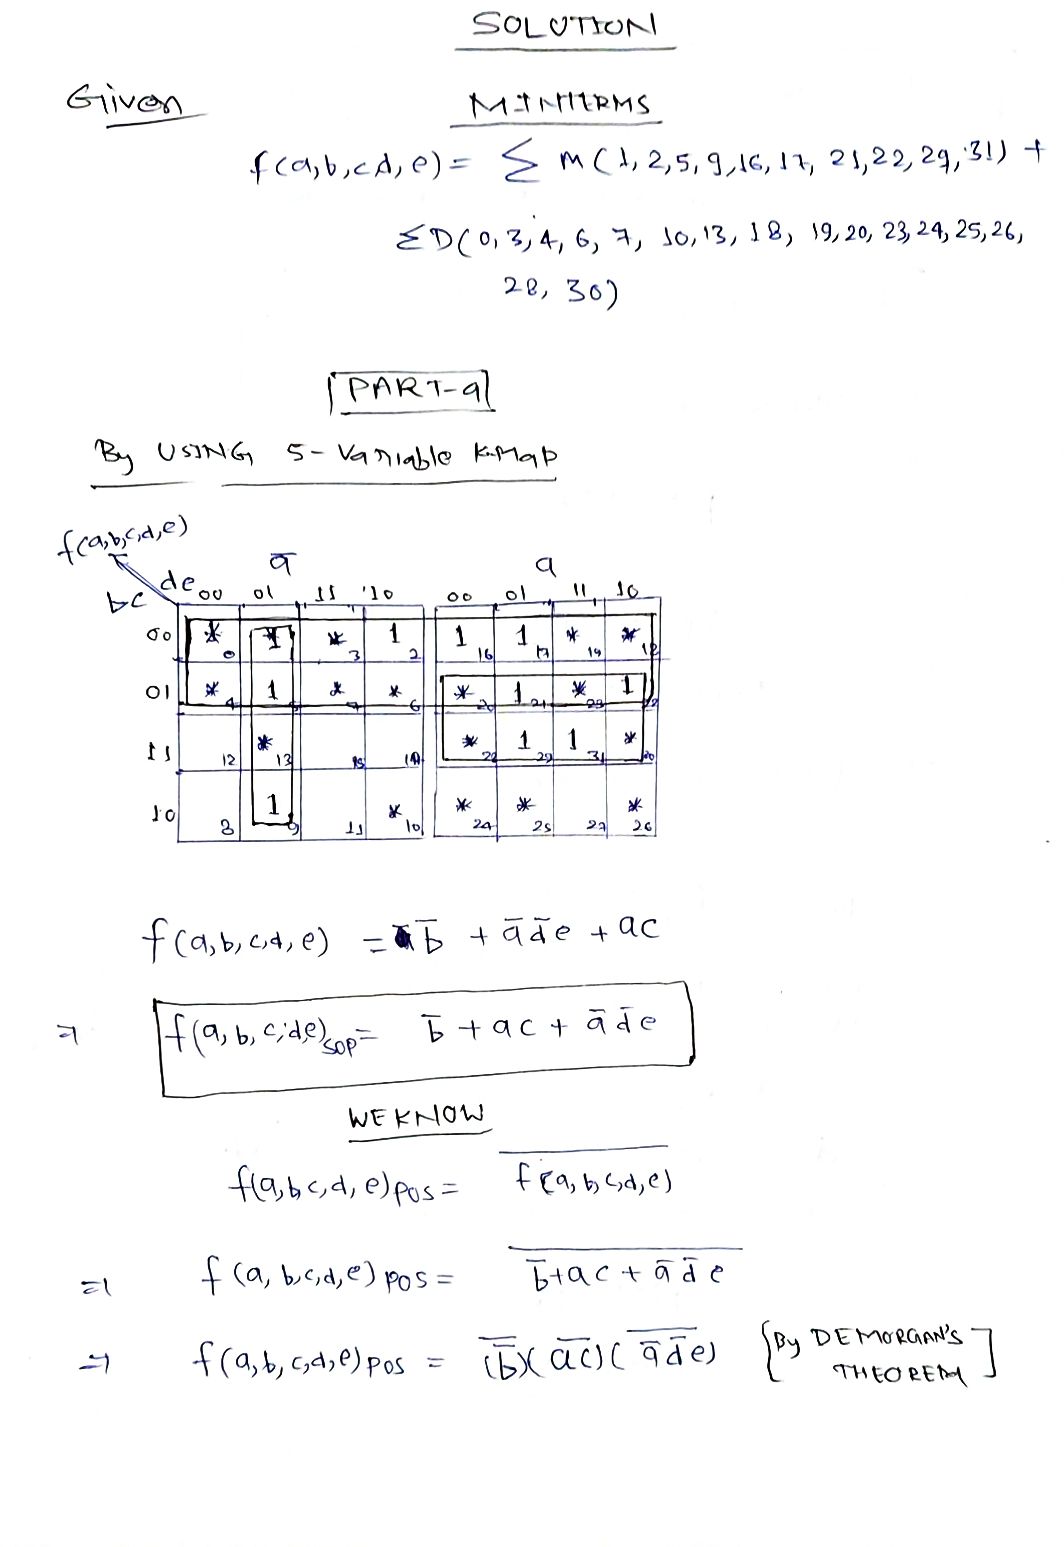 SOLUTION
Given
MINTERMS
f(a,b,c,d,e) = Σ m(1,2,5,9,16,17, 21,22,29,31) +
ΣD(0,3,4,6,7, 10,13, 18, 19,20, 23,24,25,26,
28, 30)
PART-a
By USING 5-Variable K-Map
f(a,b,c,d,e)
ā a
de 00 01 11 10 00 01 11 10
bc
00 * 0 1 1 * 3 1 2 1 16 1 17 * 19 * 18
01 * 4 1 5 * 7 * 6 * 20 1 21 * 23 1 22
11 12 * 13 15 14 * 28 1 29 1 31 * 30
10 8 1 9 11 * 10 * 24 * 25 27 * 26
f(a,b,c,d,e) = b̄ + ā d̄ e + ac
⇒ f(a,b,c,d,e)SOP = b̄ + ac + ā d̄ e
WE KNOW
f(a,b,c,d,e)POS = \overline{f(a,b,c,d,e)}
⇒ f(a,b,c,d,e)POS = \overline{b̄+ac+ā d̄ e}
⇒ f(a,b,c,d,e)POS = (\overline{b̄})(\overline{ac})(\overline{ā d̄ e}) [By DEMORGAN'S
THEOREM]